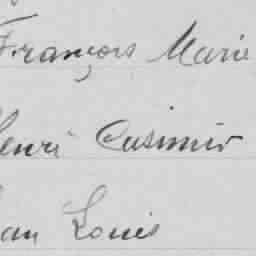 François Marie
Henri Casimir
Jean Louis